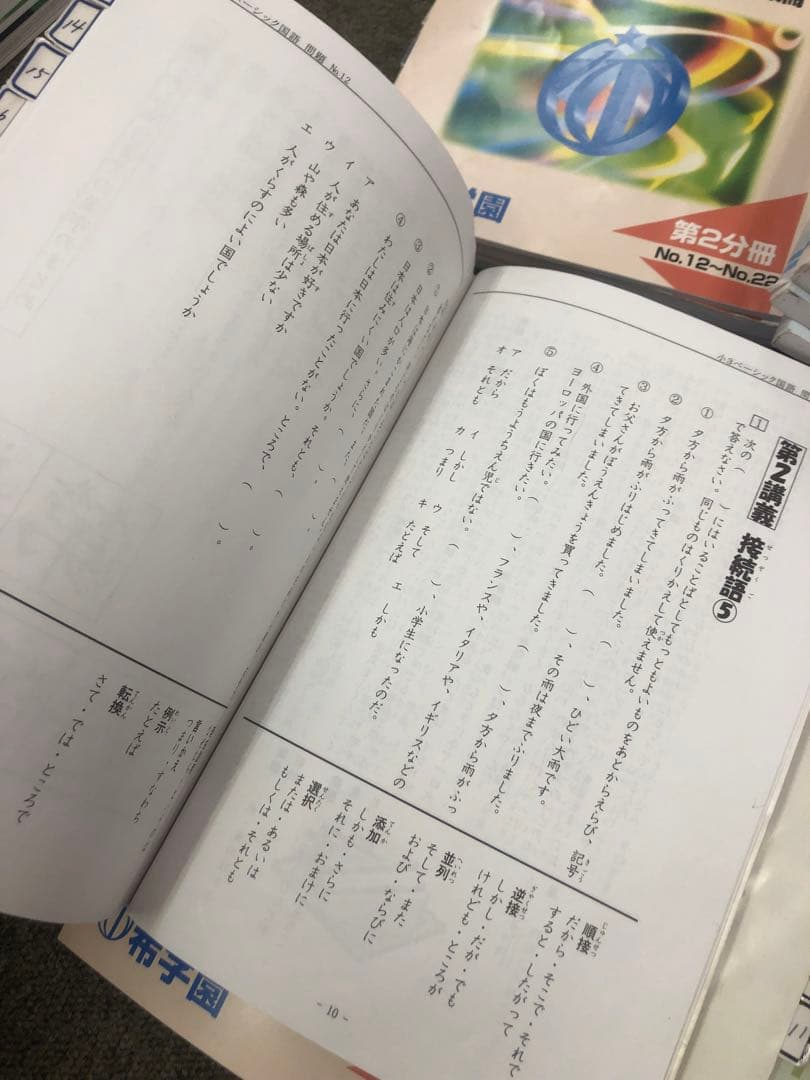 小3ベーシック国語
第2講義 接続語⑤
せつぞくご
1 次の( )にはいることばとしてもっともよいものをあとからえらび、記号
で答えなさい。同じものはくりかえして使えません。
① 夕方から雨がふりはじめました。( )、その雨は夜までふりました。
② 夕方から雨がふってきてしまいました。( )、ひどい大雨です。
③ お父さんがぼうえんきょうを買ってきました。( )、夕方から雨がふっ
てきてしまいました。
④ 外国に行ってみたい。( )、フランスや、イタリアや、イギリスなどの
ヨーロッパの国に行きたい。
⑤ ぼくはもうようちえん児ではない。( )、小学生になったのだ。
ア だから イ しかし ウ そして エ しかも
オ それとも カ つまり キ たとえば
順接
じゅんせつ
だから・そこで・それで
すると・したがって
逆接
ぎゃくせつ
しかし・だが・でも
けれども・ところが
並列
へいれつ
そして・また
および・ならびに
添加
てんか
しかも・さらに
それに・おまけに
選択
せんたく
または・あるいは
もしくは・それとも
- 10 -
ベーシック国語 問題 No.12
③ 日本は人口が多い。さらに、( )。
④ 日本は住みにくい国でしょうか。それとも、( )。
わたしは日本に行ったことがない。ところで、( )。
ア あなたは日本が好きですか
イ 人が住める場所は少ない
ウ 山や森も多い
エ 人がくらすのによい国でしょうか
つまり・すなわち
例示
れいじ
たとえば
転換
てんかん
さて・では・ところで
14
15
6
園
第2分冊
No.12~No.22
布子園
11